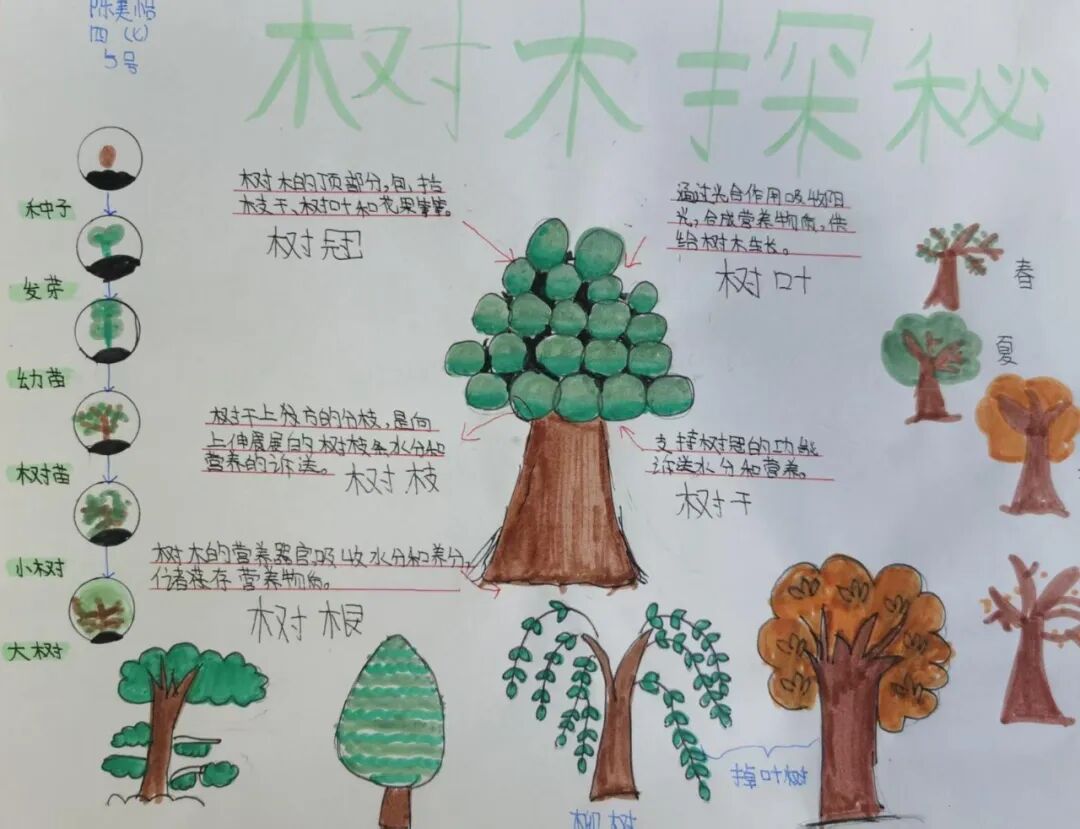 陈美怡
四（七）
5号
树木探秘
种子
发芽
幼苗
树苗
小树
大树
树木的顶部分，包括
枝干、树叶和花果等等。
树冠
通过光合作用吸收阳
光，合成营养物质，供
给树木生长。
树叶
树干上方的分枝，是向
上伸展的树枝条水分和
营养的诉送。
树枝
支持树冠的功能
诉送水分和营养。
树干
树木的营养器官吸收水分和养分，
储存营养物质。
树根
春
夏
柳树
掉叶树